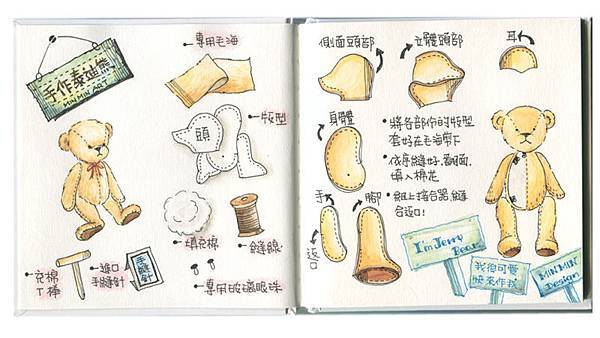 手作泰迪熊
MIN MIN ART
專用毛海
版型
頭
填充棉
縫線
充棉
T棒
進口
手縫針
手縫針
專用玻璃眼珠
側面頭部
立體頭部
耳
身體
手
腳
返口
將各部份的版型
套好在毛海剪下
依序縫好、翻面、
填入棉花
組上接合器,縫
合返口!
I'm Jerry
Bear
我很可愛
快來作我
MIN MIN
Design